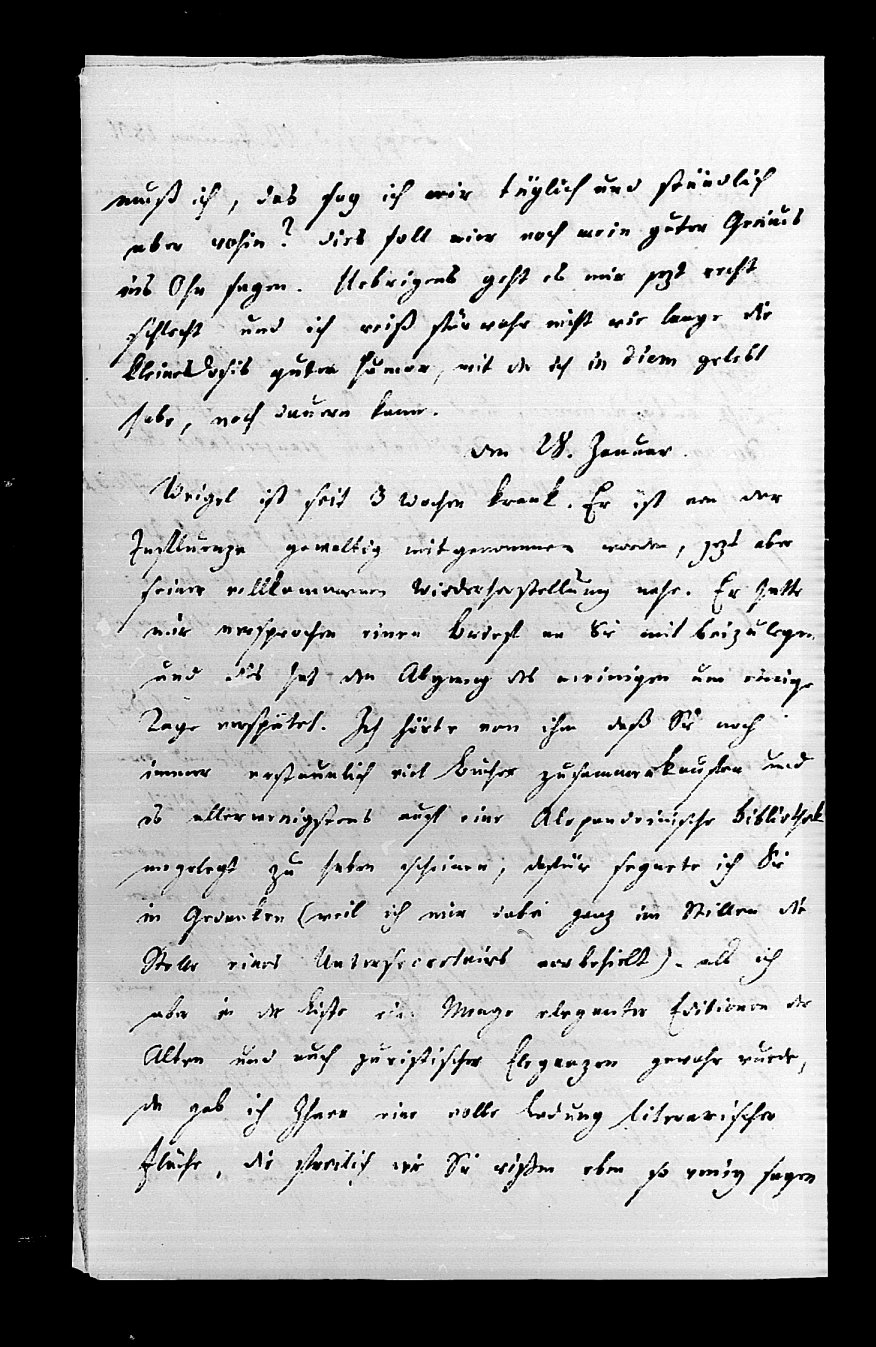 muß ich, das sag ich mir täglich und stündlich
aber wohin? dies soll mir noch mein guter Genius
ins Ohr sagen. Uebrigens geht es mir jezt recht
schlecht und ich weiß fürwahr nicht wie lange die
kleine Dosis guter Humor, mit der ich in diem gelebt
habe, noch dauern kann.
den 28. Januar.
Weigel ist seit 3 Wochen krank. Er ist von der
Influenza gewaltig mitgenommen worden, jezt aber
seiner vollkommenen Wiederherstellung nahe. Er hatte
mir versprochen einen Brief an Sie mit beizulegen
und dies hat den Abgang des meinigen um einige
Tage verspätet. Ich hörte von ihm daß Sie noch
immer erstaunlich viel Bücher zusammenkauften und
es allerwenigstens auf eine Alexandrinische Bibliothek
angelegt zu haben scheinen, dafür segnete ich Sie
in Gedanken (weil ich mir dabei ganz im Stillen die
Stelle eines Untersecretairs vorbehielt) - als ich
aber in der Kiste eine Menge eleganter Editionen der
Alten und auch juristischer Eleganzen gewahr wurde,
da gab ich Ihnen eine volle Ladung literarischer
Flüche, die freilich wie Sie wißen eben so wenig sagen